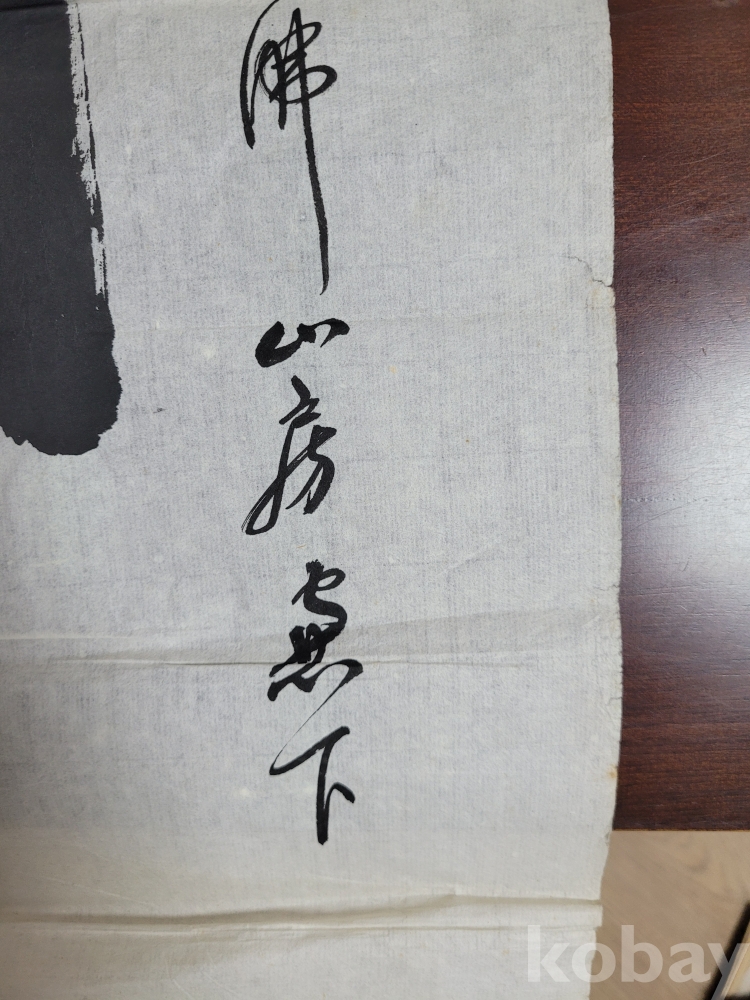 佛山房窓下
kobay